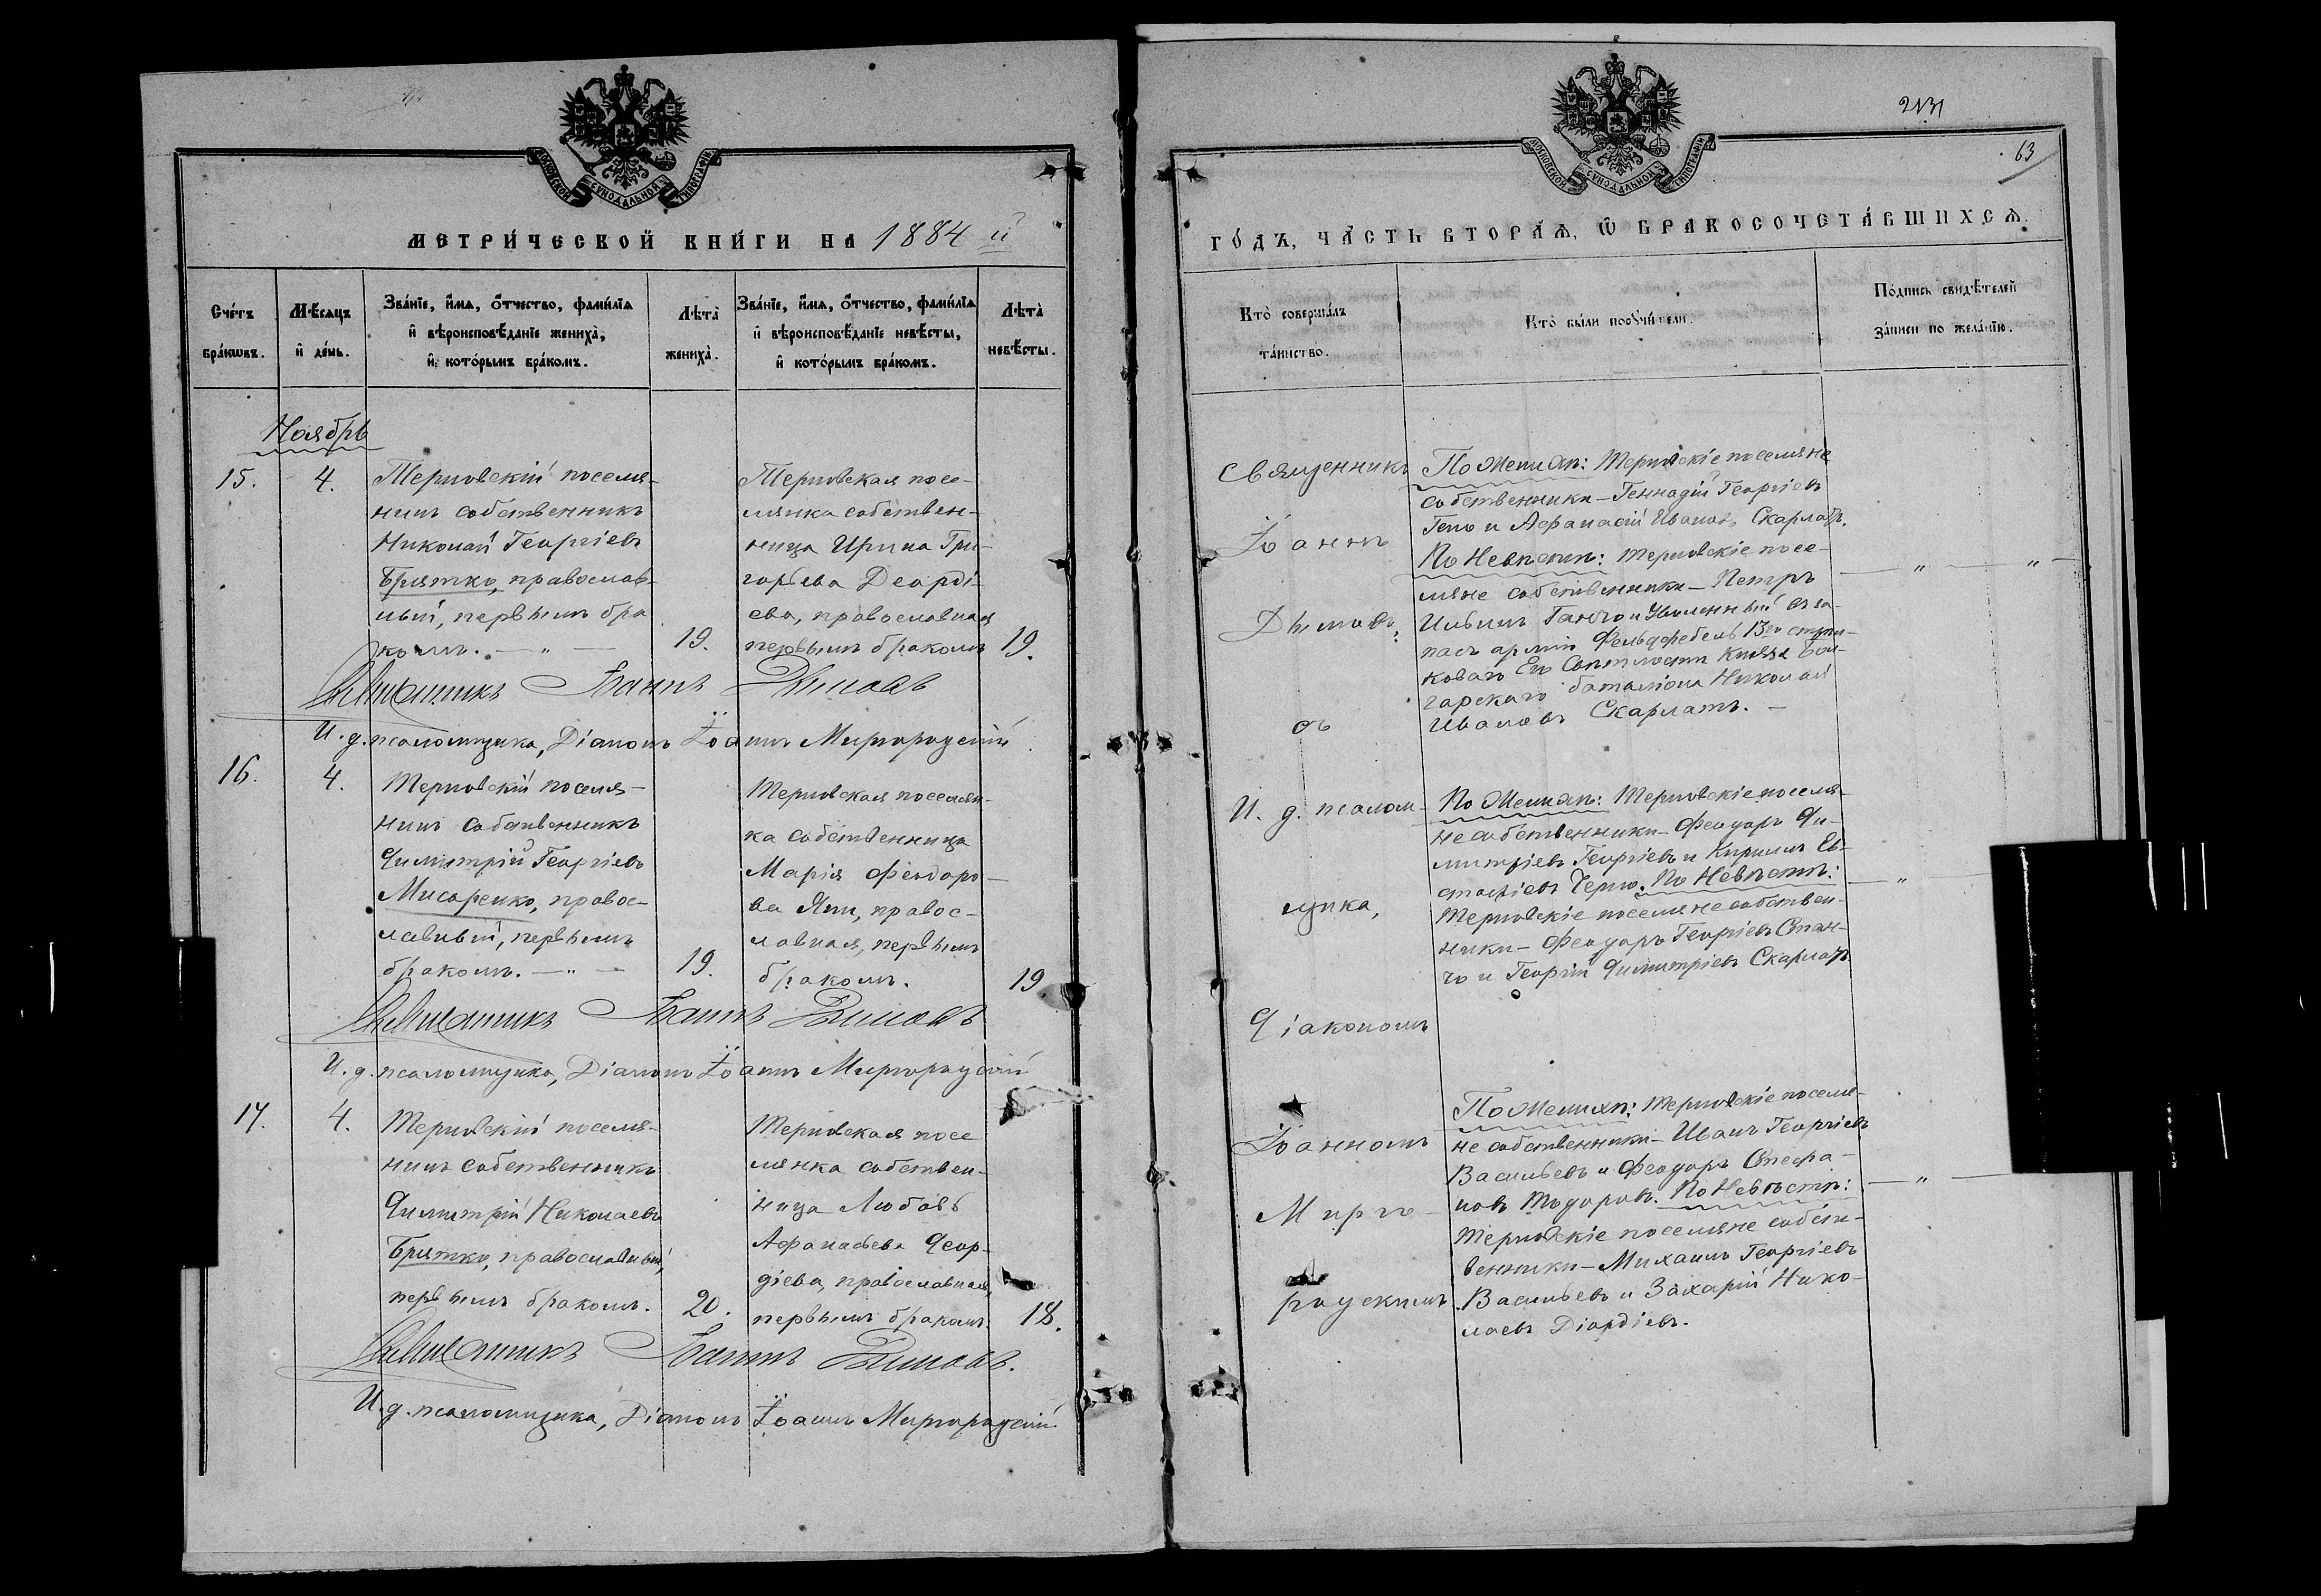 МОСКОВСКОЙ СѴНОДАЛЬНОЙ ТИПОГРАФІИ
МЕТРИ́ЧЕСКОЙ КНИ́ГИ НА 1884 й
Сче́тъ бра́кωвъ.
Мѣ́сяцъ и҆ де́нь.
Зва́нїе, и҆́мѧ, ѻ҆́тчество, фами́лїѧ
и҆ вѣроисповѣ́данїе жениха̀,
и҆ кото́рымъ бра́комъ.
Лѣта̀ жениха̀.
Зва́нїе, и҆́мѧ, ѻ҆́тчество, фами́лїѧ
и҆ вѣроисповѣ́данїе невѣ́сты,
и҆ кото́рымъ бра́комъ.
Лѣта̀ невѣ́сты.
Ноябрь
15.
4.
Терновскій поселя-
нинъ собственникъ
Николай Георгіевъ
Брятко, православ-
ный, первымъ бра
комъ. — „ —
19.
Терновская посе-
лянка собствен-
ница Ирина Гри-
горьева Деорді-
ева, православная
первымъ бракомъ
19.
Священникъ Іоаннъ Дымовъ
И. д. псаломщика, Діаконъ Іоаннъ Миргородскій
16.
4.
Терновскій поселя-
нинъ собственникъ
Димитрій Георгіевъ
Мисаренко, правос-
лавный, первымъ
бракомъ. — „ —
19.
Терновская поселян-
ка собственница
Марія Феодоро-
ва Яни, правос-
лавная, первымъ
бракомъ.
19.
Священникъ Іоаннъ Дымовъ
И. д. псаломщика, Діаконъ Іоаннъ Миргородскій
17.
4.
Терновскій поселя-
нинъ собственникъ
Димитрій Николаевъ
Брятко, православный,
первымъ бракомъ.
20.
Терновская посе
лянка собствен-
ница Любовь
Афанасьева Деор-
діева, православная,
первымъ бракомъ.
18.
Священникъ Іоаннъ Дымовъ.
И. д. псаломщика, Діаконъ Іоаннъ Миргородскій
63
МОСКОВСКОЙ СѴНОДАЛЬНОЙ ТИПОГРАФІИ
ГО́ДЪ, ЧА́СТЬ ВТОРА́Ѧ, Ѽ БРАКОСОЧЕТА́ВШИХСѦ.
Кто̀ соверша́лъ
та́инство.
Кто̀ бы́ли порꙋчи́тели.
По́дпись свидѣ́телей
за́писи по жела́нїю.
Священникъ
Іоаннъ
Дымовъ,
съ
И. д. псалом-
щика,
Діакономъ
Іоанномъ
Мирго-
родскимъ.
По Женихѣ: Терновскіе поселяне
собственники – Геннадій Георгіевъ
и Афанасій Ивановъ Скарлатъ.
По Невѣстѣ: Терновскіе посе-
ляне собственники – Петръ
Ильинъ Ганчо и Уволенный въ за-
пасъ арміи Фельдфебель 13го стрѣл-
коваго Его Свѣтлости Князя Бол-
гарскаго баталіона Николай
Ивановъ Скарлатъ. –
— „ — „ —
По Женихѣ: Терновскіе поселя-
не собственники – Феодоръ Ди-
митріевъ Георгіевъ и Кириллъ Ев-
стафіевъ Черно. По Невѣстѣ:
Терновскіе поселяне собствен-
ники – Феодоръ Георгіевъ Стан-
чо и Георгій Димитріевъ Скарлатъ
— „ —
По Женихѣ: Терновскіе поселя-
не собственники – Иванъ Георгіевъ
Васильевъ и Феодоръ Стефа-
новъ Тодоровъ. По Невѣстѣ:
Терновскіе поселяне собст-
венники – Михаилъ Георгіевъ
Васильевъ и Захарій Нико-
лаевъ Діордіевъ.
— „ —